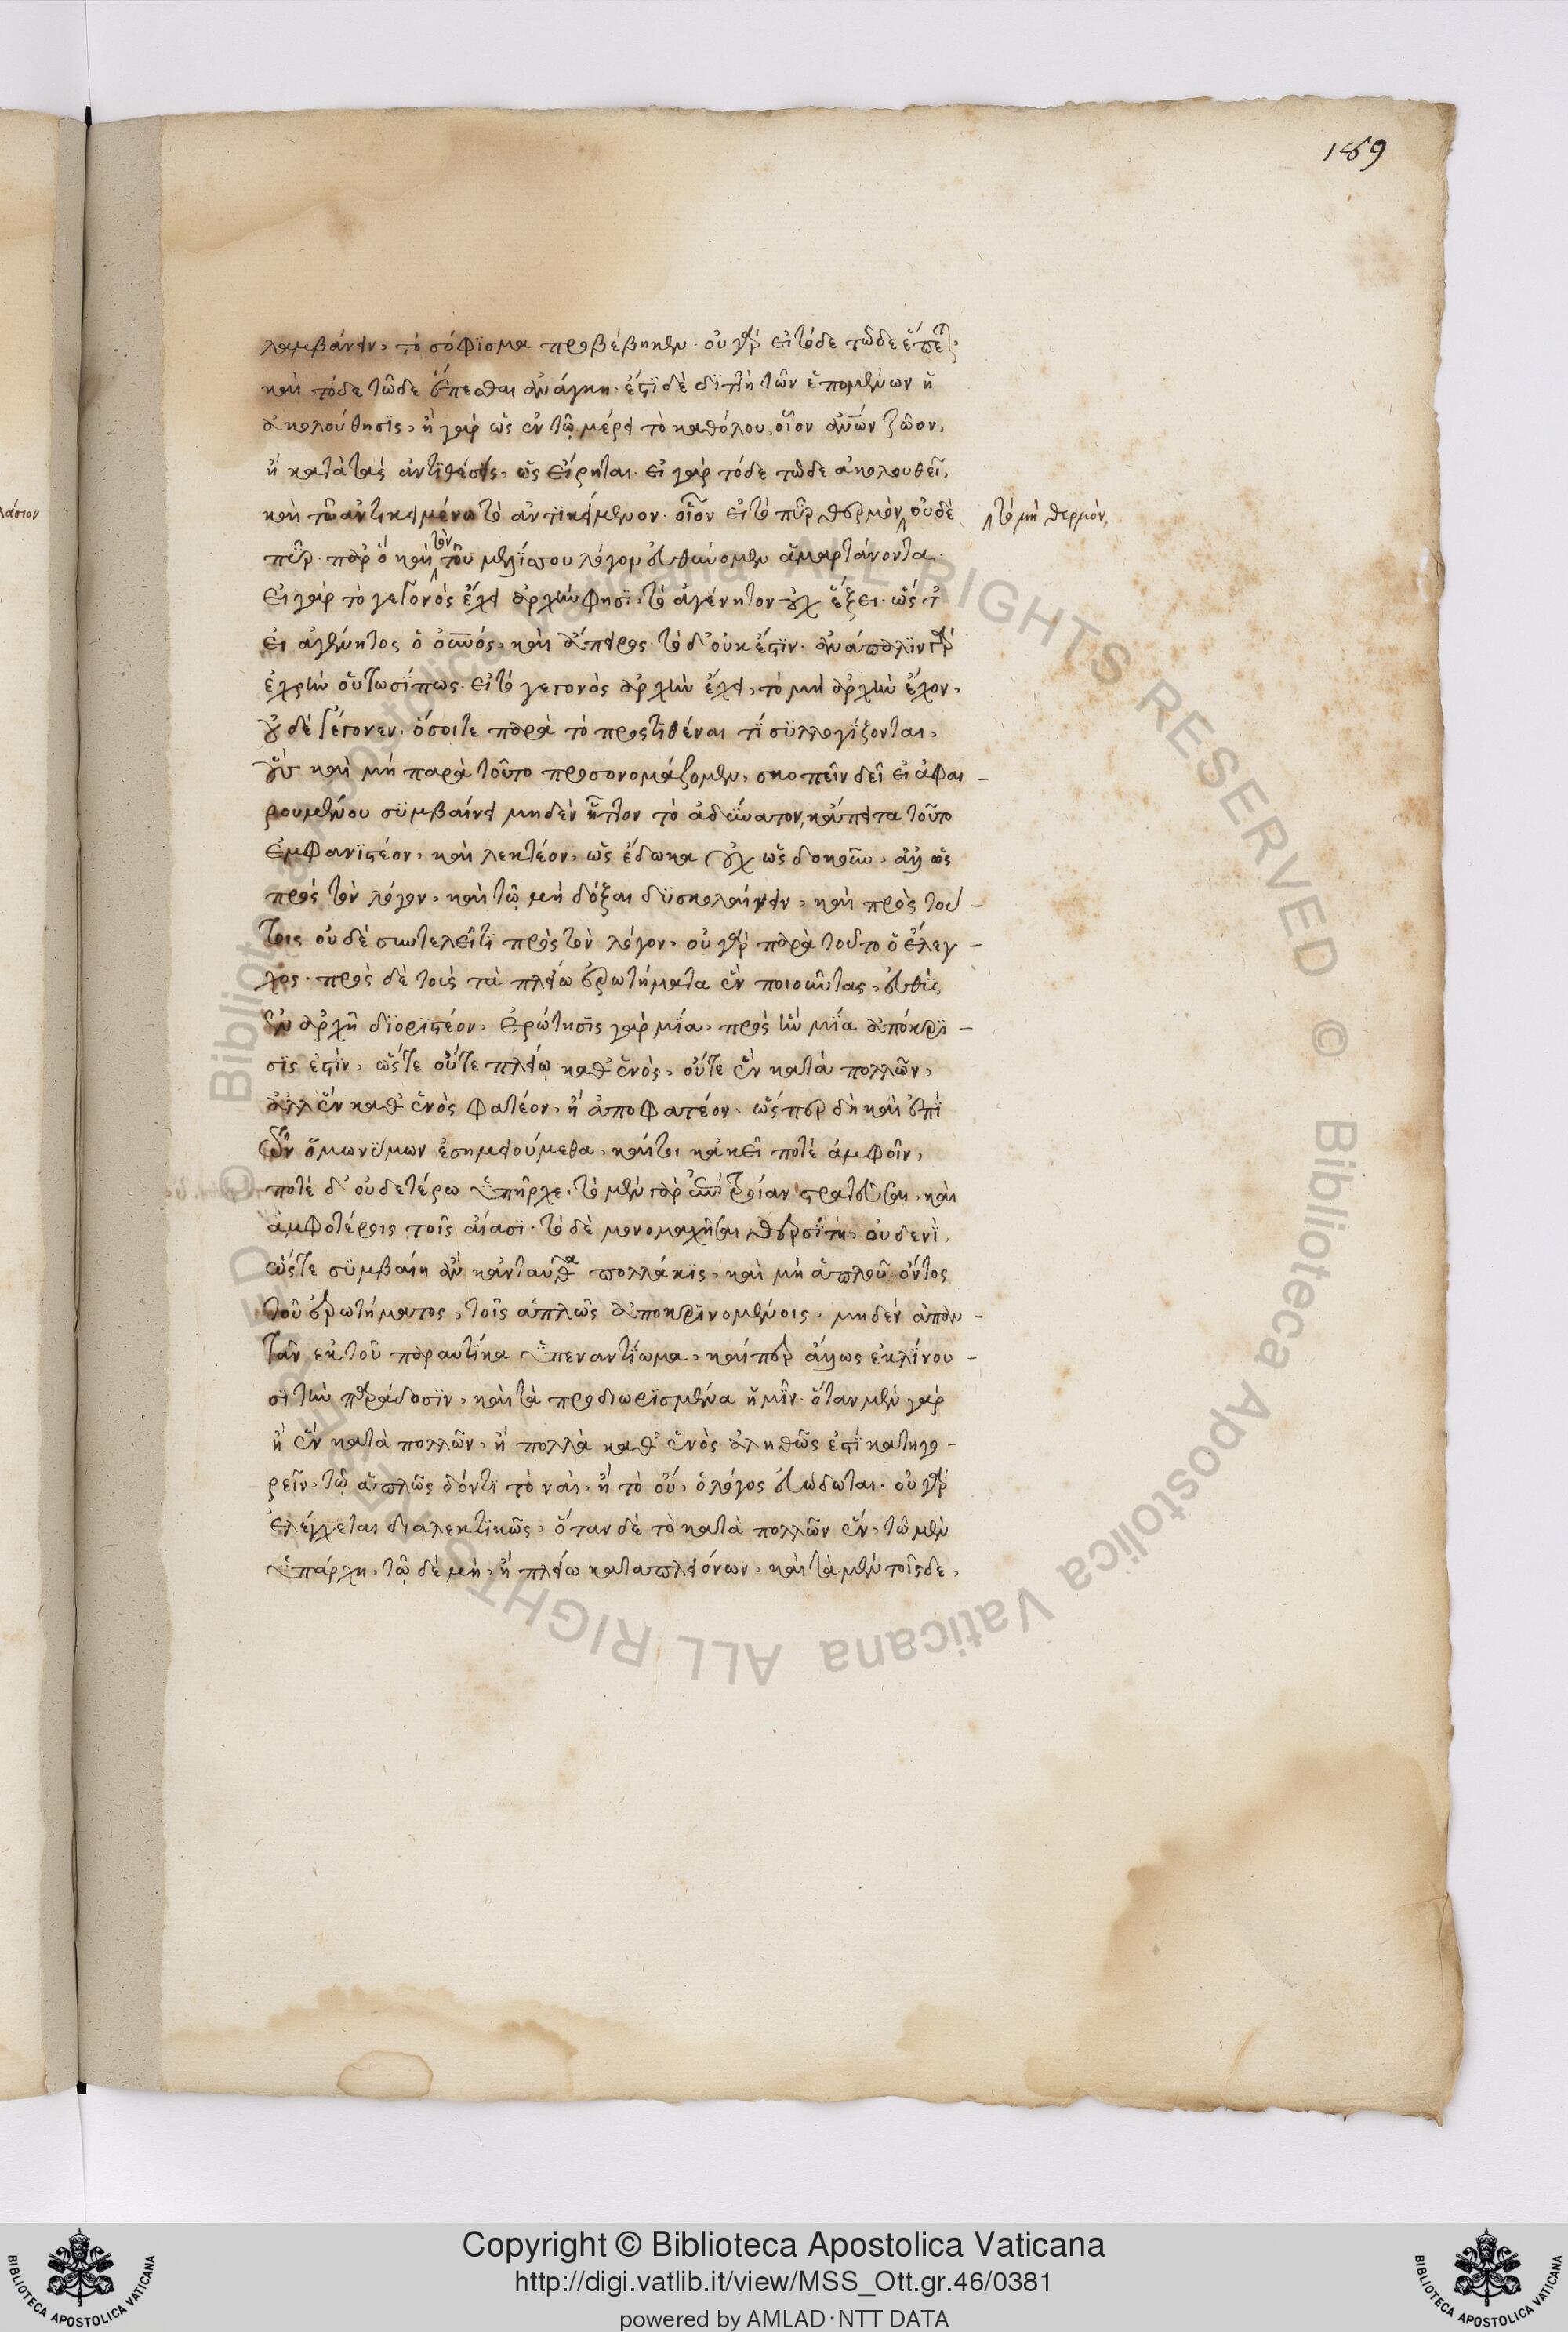 189
λαμβάνειν, τὸ σόφισμα προβέβηκεν. οὐ γὰρ εἰ τόδε τῶδε ἕπεται,
καὶ τόδε τῶδε ἕπεσθαι ἀνάγκη. ἔστι δὲ διττὴ τῶν ἑπομένων ἡ
ἀκολούθησις, ἢ γὰρ ὡς ἐν τῶ μέρει τὸ καθόλου, οἷον ἀνων ζῶον,
ἢ κατὰ τὰς ἀντιθέσεις, ὡς εἴρηται. εἰ γὰρ τόδε τῶδε ἀκολουθεῖ,
καὶ τῶ ἀντικειμένω τὸ ἀντικείμενον. οἷον εἰ τὸ πῦρ θερμὸν, οὐδὲ
τὸ μὴ θερμὸν,
πῦρ. παρ ὃ καὶ τὸν τοῦ μελίσσου λόγον εὐθύνομεν ἁμαρτάνοντα.
εἰ γὰρ τὸ γεγονὸς ἔχει ἀρχὴν φησὶ, τὸ ἀγένητον οὐχ ἕξει. ὥστ
εἰ ἀγένητος ὁ οὐνός, καὶ ἄπειρος. τὸ δ' οὐκ ἔστιν. ἀνάπαλιν γὰρ
ἐχρῆν οὕτωσί πως. εἰ τὸ γεγονὸς ἀρχὴν ἔχει, τὸ μὴ ἀρχὴν ἔχον,
οὐδὲ γέγονεν. ὅσοι τε παρὰ τὸ προστιθέναι τὶ συλλογίζονται,
οὓς καὶ μὴ παρὰ τοῦτο προσονομάζομεν, σκοπεῖν δεῖ εἰ ἀφαι-
ρουμένου συμβαίνει μηδὲν ἧττον τὸ ἀδύνατον, κἄπειτα τοῦτο
ἐμφανιστέον, καὶ λεκτέον, ὡς ἔδωκα οὐχ ὡς δοκοῦν, ἀλλ ὡς
πρὸς τὸν λόγον, καὶ τῶ μὴ δόξαι δυσκολαίνειν, καὶ πρὸς τού-
τοις οὐδὲ συντελεῖ τι πρὸς τὸν λόγον, οὐ γὰρ παρὰ τοῦτο ὁ ἔλεγ-
χος. πρὸς δὲ τοὺς τὰ πλείω ἐρωτήματα ἓν ποιοῦντας, εὐθὺς
ἐν ἀρχῆ διοριστέον. ἐρώτησις γὰρ μία, πρὸς ἣν μία ἀπόκρι-
σις ἐστὶν, ὥστε οὔτε πλείω καθ' ἑνὸς, οὔτε ἓν κατὰ πολλῶν,
ἀλλ ἓν καθ' ἑνὸς φατέον, ἢ ἀποφατέον. ὥσπερ δὴ καὶ ἐπὶ
τῶν ὁμωνύμων ἐσημειούμεθα, καίτοι κἀκεῖ ποτὲ ἀμφοῖν,
ποτὲ δ' οὐδετέρω ὑπῆρχε. τὸ μὲν γὰρ ἐπὶ τροίαν στρατεῦσαι, καὶ
ἀμφοτέροις τοῖς αἴασι. τὸ δὲ μονομαχῆσαι θερσίτη, οὐδενὶ.
ὥστε συμβαίη ἂν κἀνταῦθα πολλάκις, καὶ μὴ ἁπλοῦ ὄντος
τοῦ ἐρωτήματος, τοῖς ἁπλῶς ἀποκρινομένοις, μηδὲν ἀπαν-
τᾶν ἐκ τοῦ παραυτίκα ὑπεναντίωμα, καίπερ ἄλλως ἐκκλίνου-
σι τὴν παράδοσιν, καὶ τὰ προδιωρισμένα ἡμῖν. ὅταν μὲν γὰρ
ἢ ἓν κατὰ πολλῶν, ἢ πολλὰ καθ' ἑνὸς ἀληθῶς ἐστὶ κατηγο-
ρεῖν, τῶ ἁπλῶς δόντι τὸ ναὶ, ἢ τὸ οὔ, ὁ λόγος εὐώδωται. οὐ γὰρ
ἐλέγχεται διαλεκτικῶς. ὅταν δὲ τὸ κατὰ πολλῶν ἓν, τῶ μὲν
ὑπάρχη, τῶ δὲ μὴ, ἢ πλείω κατα πλειόνων, καὶ τὰ μὲν τοῖσδε,
λάσιον
Copyright © Biblioteca Apostolica Vaticana
http://digi.vatlib.it/view/MSS_Ott.gr.46/0381
powered by AMLAD·NTT DATA
BIBLIOTECA APOSTOLICA VATICANA
BIBLIOTECA APOSTOLICA VATICANA